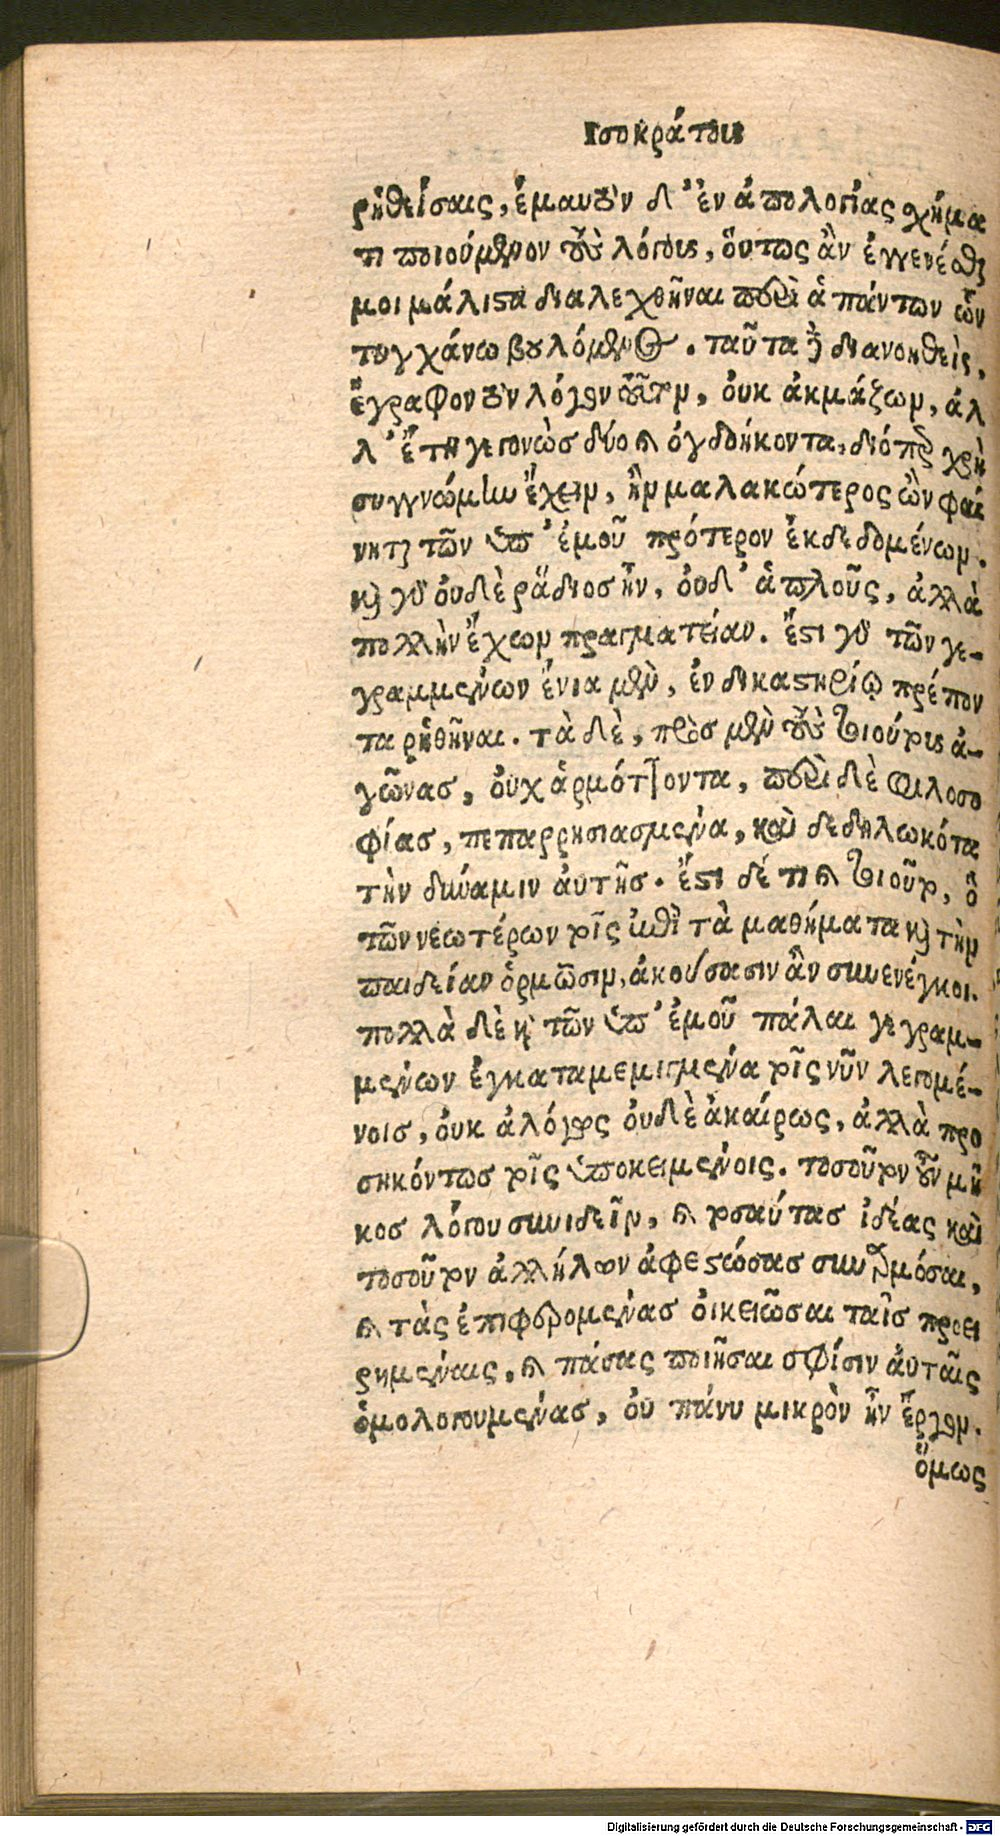 Ισοκράτους
ρηθείσαις, ἐμαυτὸν δ' ἐν ἀπολογίας χήμα
τι ποιούμενον τοὺς λόγους, ὅυτως ἂν ἐγγενέσθαι
μοι μάλιστα διαλεχθῆναι περὶ ἁπάντων ὧν
τυγχάνω βουλόμενος. ταῦτα δὲ διανοηθεὶς,
ἔγραφον τὸν λόγον τοῦτον, ὀυκ ἀκμάζων, ἀλ
λ' ἔτη γεγονὼσ δύο καὶ ὀγδοήκοντα, διόπερ χρὴ
συγγνώμην ἔχειν, ἢν μαλακώτερος ὢν φαί
νηται τῶν ὑπ' ἐμοῦ πρότερον ἐκδεδομένων.
καὶ γὰρ ὀυδὲ ῥάδιοσ ἦν, ὀυδ' ἁπλοῦς, ἀλλὰ
πολλὴν ἔχων πραγματείαν. ἔστι γὰρ τῶν γε-
γραμμένων ἔνια μὲν, ἐν δικαστηρίῳ πρέπον
τα ῥηθῆναι. τὰ δὲ, πρὸσ μὲν τοὺς τοιούτους ἀ-
γῶνασ, ὀυχ ἁρμόττοντα, περὶ δὲ φιλοσο
φίασ, πεπαρρησιασμένα, καὶ δεδηλωκότα
τὴν δύναμιν ἀυτῆσ. ἔστι δέ τι καὶ τοιοῦτον, ὃ
τῶν νεωτέρων τοῖς ἐπὶ τὰ μαθήματα καὶ τὴν
παιδείαν ὁρμῶσιν, ἀκούσασιν ἂν συνενέγκοι.
πολλὰ δὲ καὶ τῶν ὑπ' ἐμοῦ πάλαι γεγραμ-
μένων ἐγκαταμεμιγμένα τοῖς νῦν λεγομέ-
νοισ, ὀυκ ἀλόγως ὀυδὲ ἀκαίρως, ἀλλὰ προ
σηκόντωσ τοῖς ὑποκειμένοις. τοσοῦτον ὀῦν μῆ
κοσ λόγου συνιδεῖν, καὶ τοσαύτασ ἰδέας καὶ
τοσοῦτον ἀλλήλων ἀφεστώσασ συναρμόσαι,
καὶ τὰς ἐπιφερομένασ ὀικειῶσαι ταῖσ προει
ρημέναις, καὶ πάσας ποιῆσαι σφίσιν ἀυταῖς
ὁμολογουμένασ, ὀυ πάνυ μικρὸν ἦν ἔργον.
ὅμως
Digitalisierung gefördert durch die Deutsche Forschungsgemeinschaft - DFG